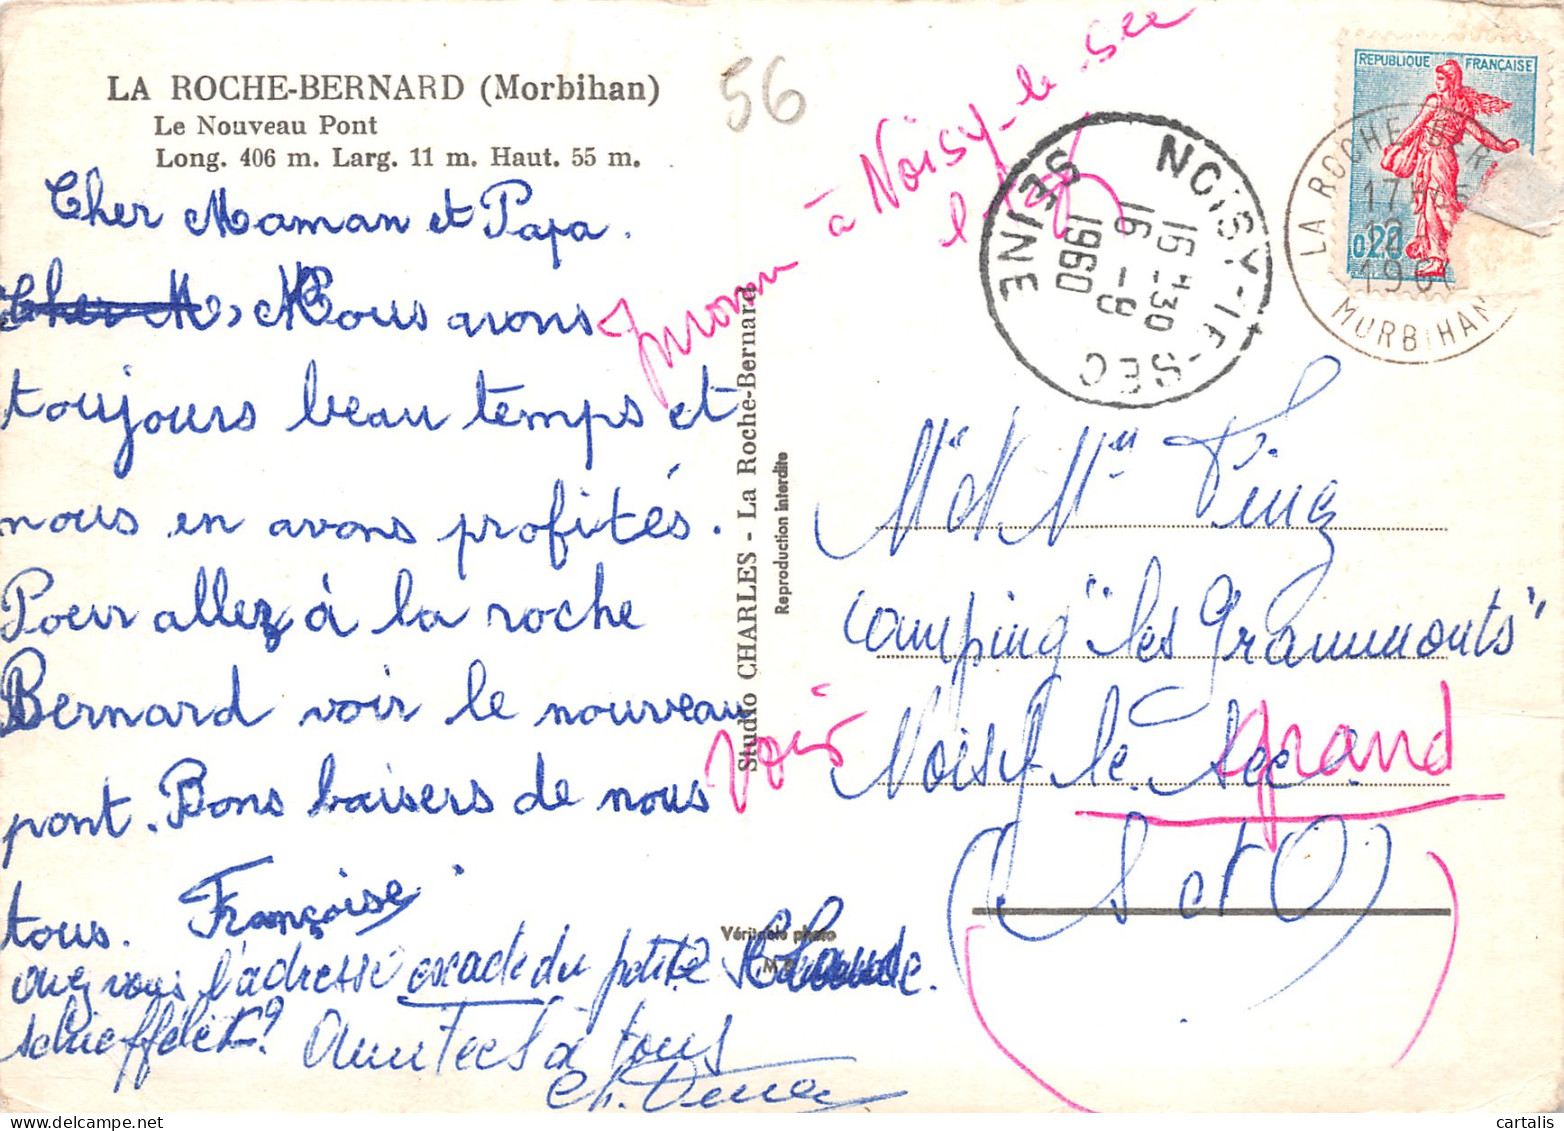 LA ROCHE-BERNARD (Morbihan)
Le Nouveau Pont
Long. 406 m. Larg. 11 m. Haut. 55 m.
56
Cher Maman et Papa.
Cher M Nous avons
toujours beau temps et
nous en avons profités.
Pour allez à la roche
Bernard voir le nouveau
pont. Bons baisers de nous
tous. Françoise
avez vous l'adresse exacte du petite Claude.
schieffelet? Amitiés à tous
Ch.
Studio CHARLES - La Roche-Bernard
Reproduction interdite
Véritable photo
Inconnu à Noisy-le-Sec
NOISY-LE-SEC
SEINE
16 H30
16 - 9
1960
REPUBLIQUE FRANÇAISE
0,20
LA ROCHE BER
17H
12
196
MORBIHAN
Mr et Mme
Camping "les Grammonts"
Noisy le Sec grand
voir
(S et O)
cartalis